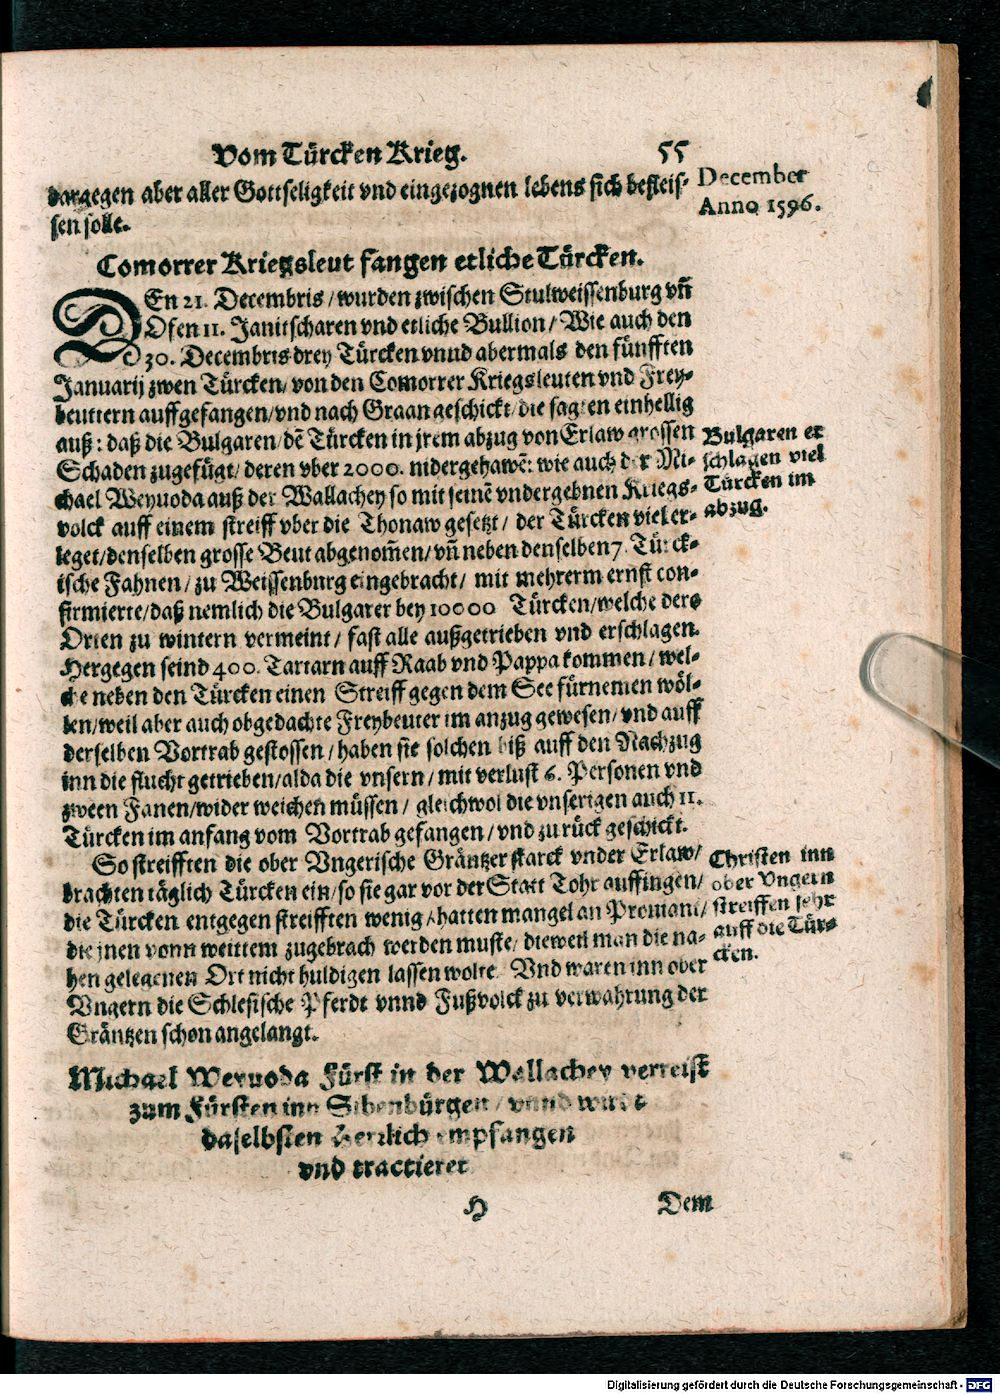 Vom Türcken Krieg. 55
dargegen aber aller Gottseligkeit vnd eingezognen lebens sich befleis-
sen solle.
December
Anno 1596.
Comorrer Kriegsleut fangen etliche Türcken.
DEn 21. Decembris / wurden zwischen Stulweissenburg vñ
Ofen 11. Janitscharen vnd etliche Bullion / Wie auch den
30. Decembris drey Türcken vnnd abermals den fünfften
Januarij zwen Türcken / von den Comorrer Kriegsleuten vnd Frey-
beuttern auffgefangen / vnd nach Graan geschickt / die sagten einhellig
auß : daß die Bulgaren / dẽ Türcken in jrem abzug von Erlaw grossen
Schaden zugefügt / deren vber 2000. nidergehawẽ: wie auch der Mi-
chael Weyuoda auß der Wallachey so mit seinẽ vndergebnen Kriegs-
volck auff einem streiff vber die Thonaw gesetzt / der Türcken viel er-
leget / denselben grosse Beut abgenom̃en / vñ neben denselben 7. Türck-
ische Fahnen / zu Weissenburg eingebracht / mit mehrerm ernst con-
firmierte / daß nemlich die Bulgarer bey 10000 Türcken / welche der
Orten zu wintern vermeint / fast alle außgetrieben vnd erschlagen.
Hergegen seind 400. Tartarn auff Raab vnd Pappa kommen / wel-
che neben den Türcken einen Streiff gegen dem See fürnemen wöl-
len / weil aber auch obgedachte Freybeuter im anzug gewesen / vnd auff
derselben Vortrab gestossen / haben sie solchen biß auff den Nachzug
inn die flucht getrieben / alda die vnsern / mit verlust 6. Personen vnd
zween Fanen / wider weichen müssen / gleichwol die vnserigen auch 11.
Türcken im anfang vom Vortrab gefangen / vnd zu rück geschickt.
Bulgaren er
schlagen viel
Türcken im
abzug.
So streifften die ober Vngerische Gräntzer starck vnder Erlaw /
brachten täglich Türcken ein / so sie gar vor der Statt Tohr auffingen /
die Türcken entgegen streifften wenig / hatten mangel an Promant /
die jnen vonn weittem zugebrach werden muste / dieweil man die na-
hen gelegenen Ort nicht huldigen lassen wolte. Vnd waren inn ober
Vngern die Schlesische Pferdt vnnd Fußvolck zu verwahrung der
Gräntzen schon angelangt.
Christen inn
ober Vngern
streiffen sehr
auff die Tür-
cken.
Michael Weyuoda Fürst in der Wallachey verreist
zum Fürsten inn Sibenbürgen / vnnd wirdt
daselbsten Herzlich empfangen
vnd tractieret
H Dem
Digitalisierung gefördert durch die Deutsche Forschungsgemeinschaft - DFG